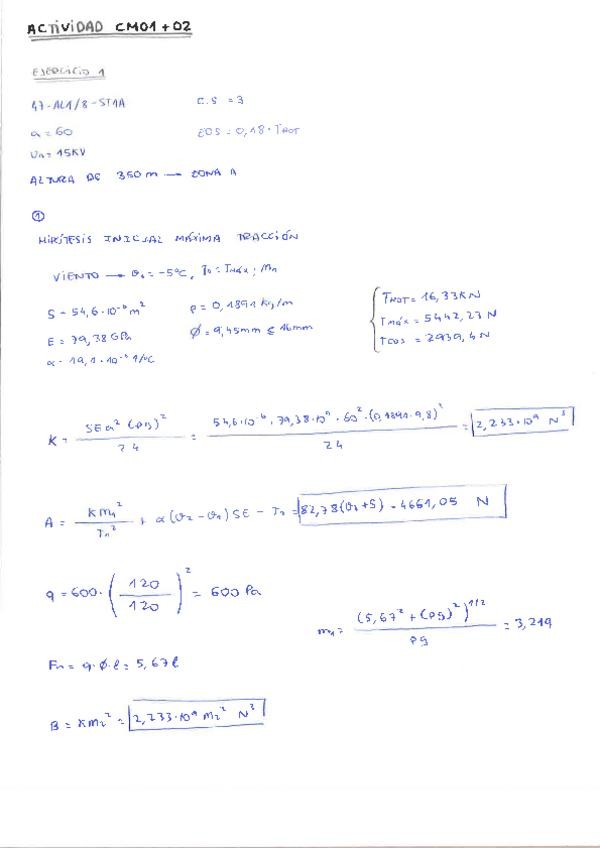 ACTIVIDAD CM01+02
EJERCICIO 1
47-AL1/8-ST1A C.S = 3
a = 60 EDS = 0,18 · TROT
Un = 15KV
ALTURA DE 350 m → ZONA A
①
HIPÓTESIS INICIAL MÁXIMA TRACCIÓN
VIENTO → θ1 = -5ºC, T0 = Tmáx ; m1
S = 54,6·10⁻⁶ m² ρ = 0,1891 kg/m
E = 79,38 GPa Ø = 9,45mm ≤ 16mm
α = 19,1·10⁻⁶ 1/ºC
TROT = 16,33KN
Tmáx = 5442,23 N
TEDS = 2939,4 N
K = SEa²(ρg)² / 24 = 54,6·10⁻⁶ · 79,38·10⁹ · 60² · (0,1891·9,8)² / 24 = 2,233·10⁹ N³
A = Km1² / T1² + α(θ2 - θ1) SE - T1 = 82,78(θ2+5) - 4661,05 N
q = 600 · (120 / 120)² = 600 Pa
m1 = (5,67² + (ρg)²)^1/2 / ρg = 3,219
Fn = q·Ø·l = 5,67l
B = Km2² = 2,233·10⁹ m2² N³